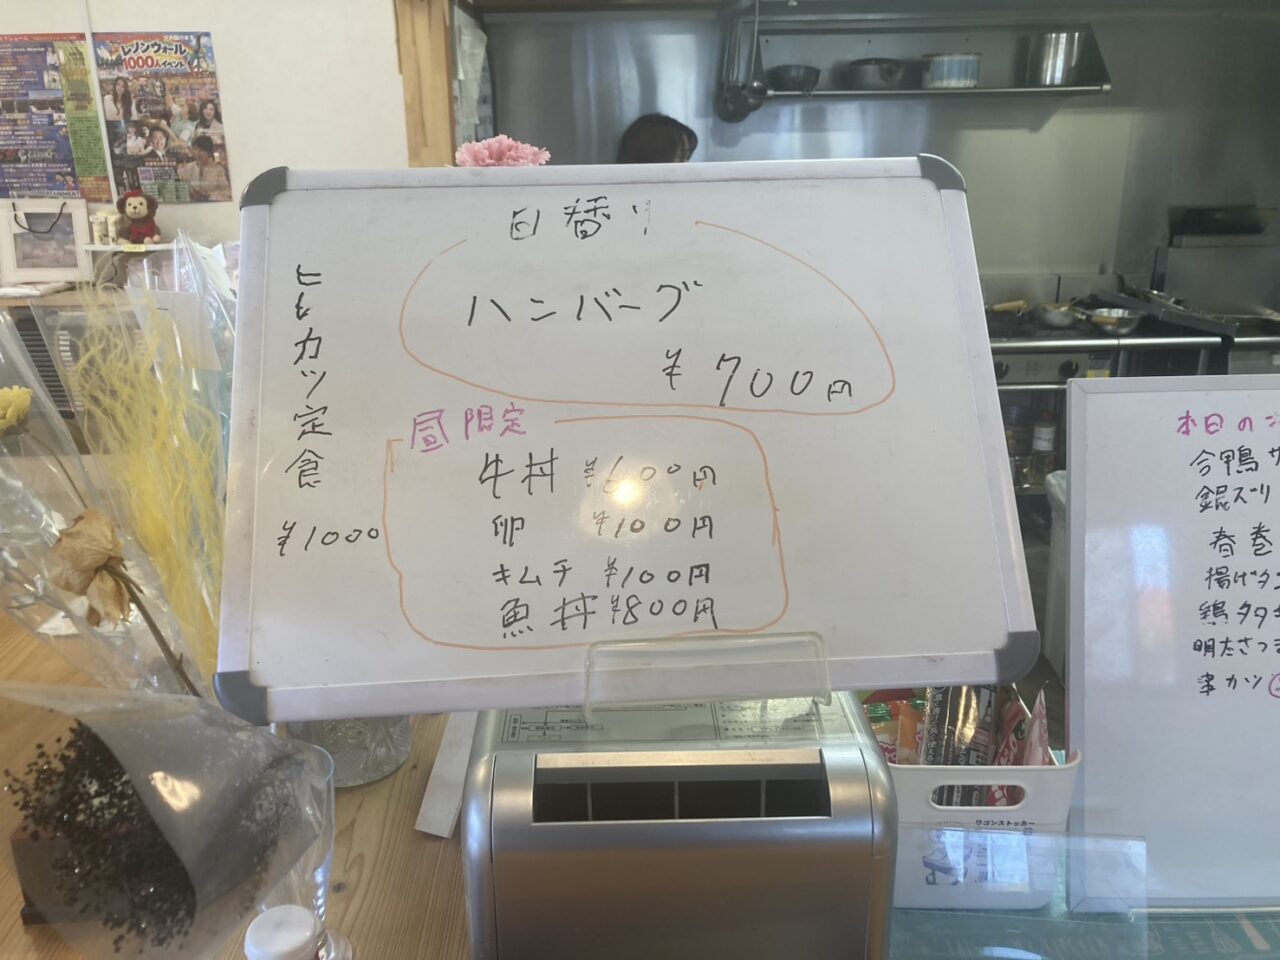 レノンウォール
1000人イベント
日替り
ハンバーグ
¥700円
ヒレカツ定食
¥1000
昼限定
牛丼 ¥600円
卵 ¥100円
キムチ ¥100円
魚丼 ¥800円
本日の
合鴨
春巻
揚げタコ
鶏タタキ
明太さつま
串カツ
ワゴンストッカー